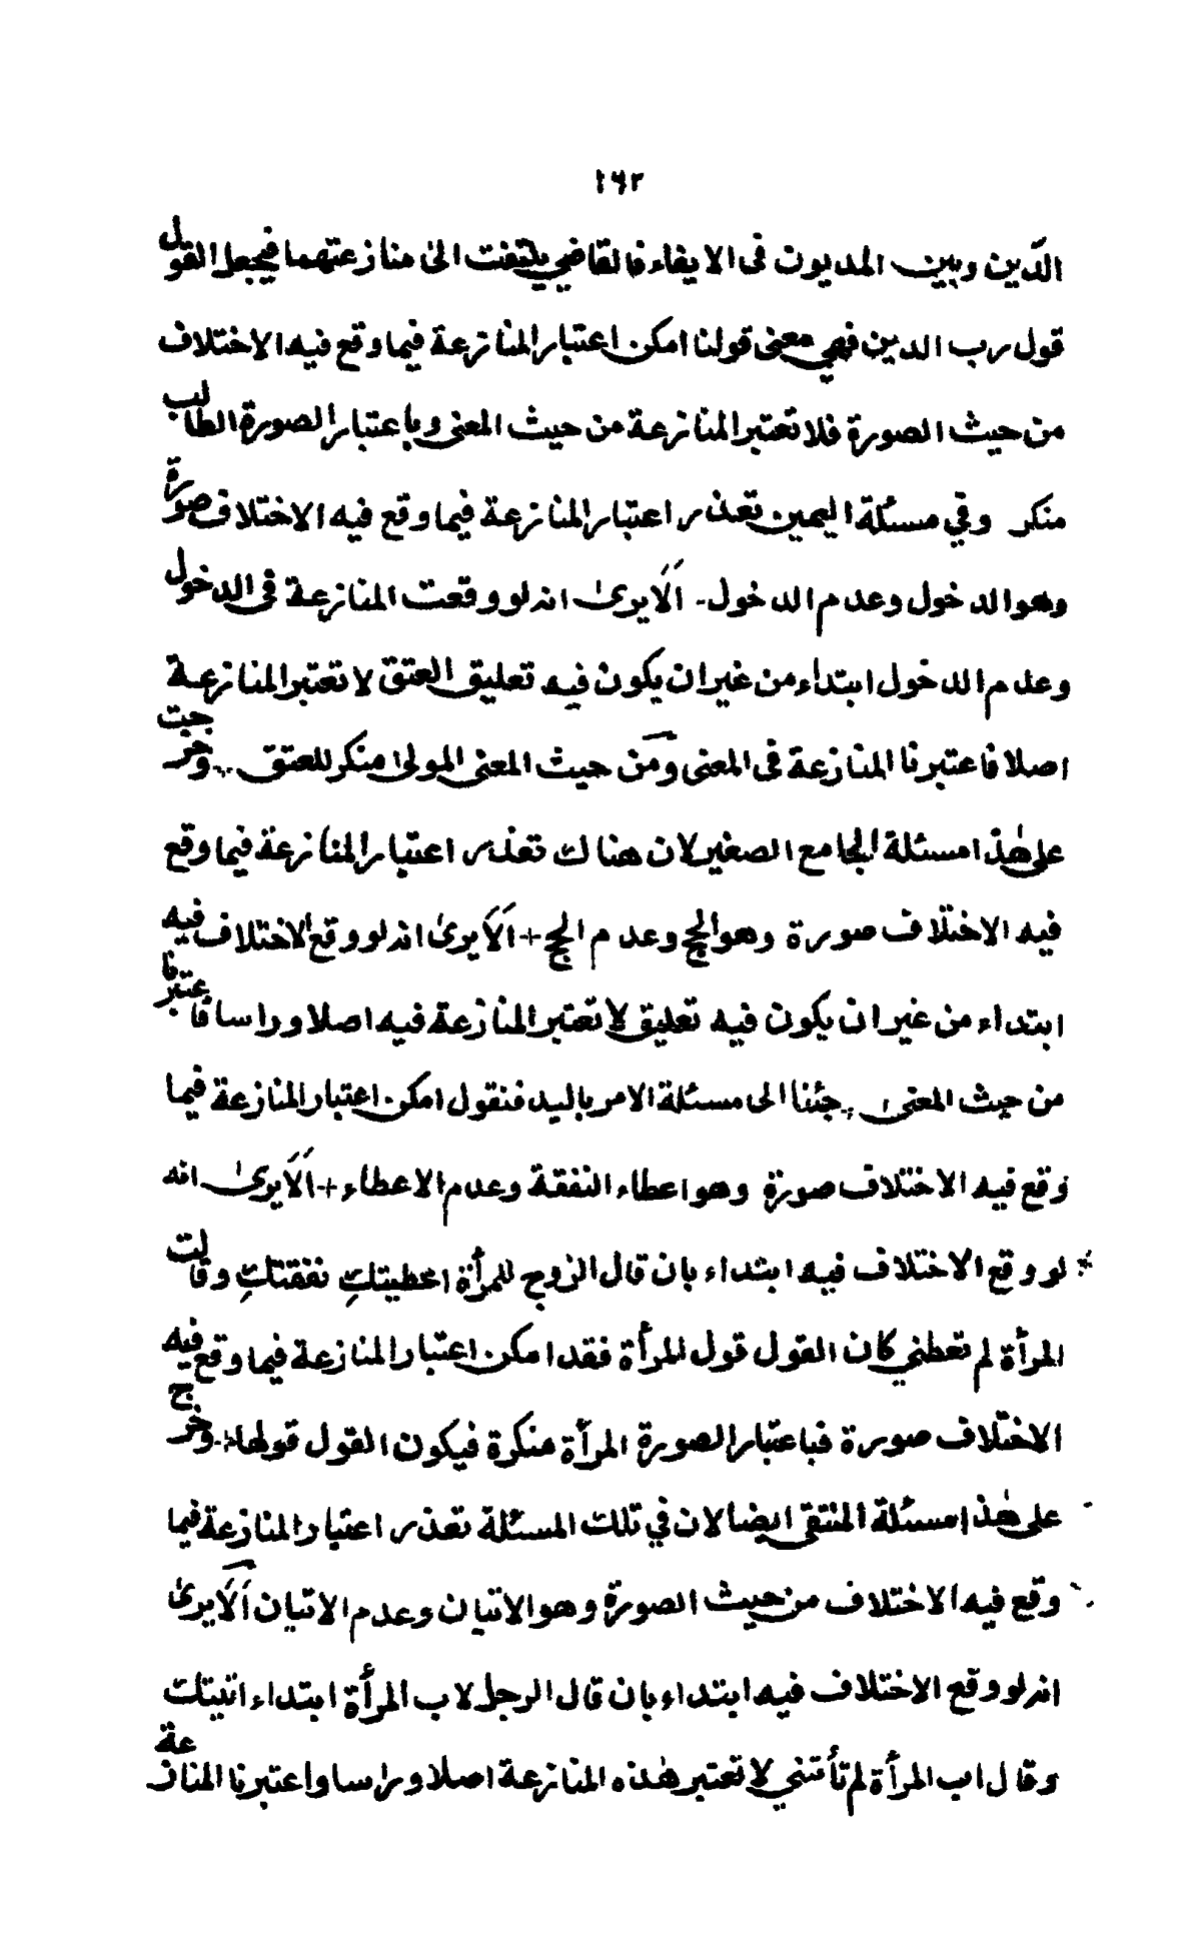 ١٦٢
الدّين وبين المديون فى الايفاء فالقاضي يلتفت الىٰ منازعتهما فيجعل القول
قول رب الدين فهي معنى قولنا امكن اعتبار المنازعة فيما وقع فيه الاختلاف
من حيث الصورة فلا تعتبر المنازعة من حيث المعنى وباعتبار الصورة الطالب
منكر وفي مسئلة اليمين تعذر اعتبار المنازعة فيما وقع فيه الاختلاف صورة
وهو الدخول وعدم الدخول - اَلَا يرىٰ انه لو وقعت المنازعة فى الدخول
وعدم الدخول ابتداء من غير ان يكون فيه تعليق العتق لا تعتبر المنازعة
اصلا فاعتبرنا المنازعة فى المعنى ومن حيث المعنى المولىٰ منكر للعتق وخرجت
على هٰذا مسئلة الجامع الصغير لان هناك تعذر اعتبار المنازعة فيما وقع
فيه الاختلاف صورة وهو الحج وعدم الحج + اَلَا يرىٰ انه لو وقع الاختلاف فيه
ابتداء من غير ان يكون فيه تعليق لا تعتبر المنازعة فيه اصلا وراسا فاعتبرنا
من حيث المعنى جئنا الى مسئلة الامر باليد فنقول امكن اعتبار المنازعة فيما
وقع فيه الاختلاف صورة وهو اعطاء النفقة وعدم الاعطاء + اَلَا يرىٰ انه
لو وقع الاختلاف فيه ابتداء بان قال الزوج للمرأة اعطيتكِ نفقتكِ وقالت
المرأة لم تعطني كان القول قول المرأة فقد امكن اعتبار المنازعة فيما وقع فيه
الاختلاف صورة فباعتبار الصورة المرأة منكرة فيكون القول قولها وخرج
على هٰذا مسئلة المنتقى ايضا لان في تلك المسئلة تعذر اعتبار المنازعة فيما
وقع فيه الاختلاف من حيث الصورة وهو الاتيان وعدم الاتيان اَلَا يرىٰ
انه لو وقع الاختلاف فيه ابتداء بان قال الرجل لاب المرأة ابتداء اتيتك
وقال اب المرأة لم تأتني لا تعتبر هٰذه المنازعة اصلا وراسا واعتبرنا المنازعة